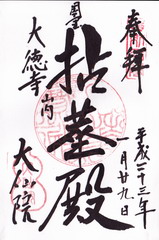 奉拝
平成二十三年
月廿九日
拈華殿
大徳寺
山内
大仙院